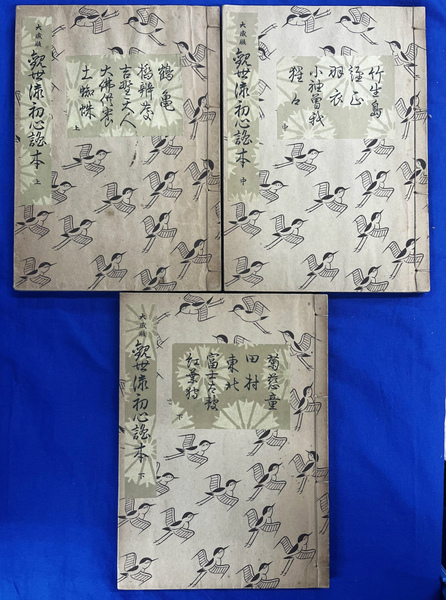 大成版
観世流初心謡本
上
鶴亀
橋弁慶
吉野天人
大佛供養
土蜘蛛
上
大成版
観世流初心謡本
中
竹生島
経正
羽衣
小袖曽我
猩々
中
大成版
観世流初心謡本
下
菊慈童
田村
東北
富士太鼓
紅葉狩
下